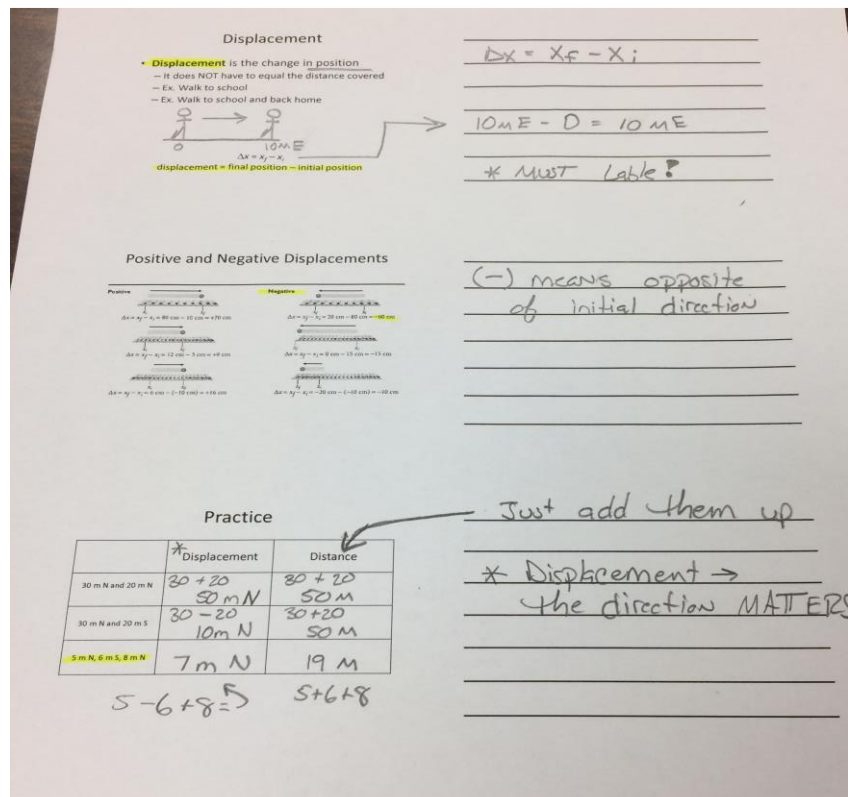 Displacement
• Displacement is the change in position
– It does NOT have to equal the distance covered
– Ex. Walk to school
– Ex. Walk to school and back home
0 10mE
Δx = xf – xi
displacement = final position – initial position
Δx = xf – xi
10mE – 0 = 10mE
* MUST Lable!
Positive and Negative Displacements
Positive
Negative
Δx = xf – xi = 80 cm – 10 cm = +70 cm
Δx = xf – xi = 20 cm – 80 cm = –60 cm
Δx = xf – xi = 12 cm – 3 cm = +9 cm
Δx = xf – xi = 0 cm – 15 cm = –15 cm
Δx = xf – xi = 6 cm – (–10 cm) = +16 cm
Δx = xf – xi = –20 cm – (–10 cm) = –10 cm
(–) means opposite
of initial direction
Practice
*Displacement Distance
30 m N and 20 m N
30 + 20
50 m N
30 + 20
50 M
30 m N and 20 m S
30 – 20
10m N
30+20
50 M
5 m N, 6 m S, 8 m N
7 m N
19 M
5 – 6 + 8 =
5+6+8
Just add them up
* Displacement →
the direction MATTERS